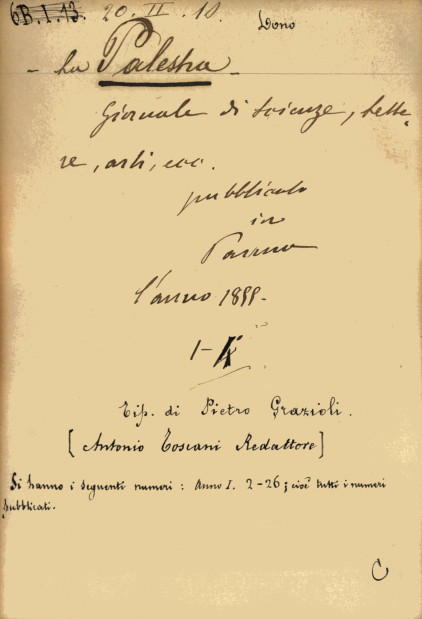 6B.I.13. 20. II. 18.
Dono
- La Palestra -
Giornale di scienze, lette-
re, arti, ecc.
pubblicato
in
Parma
l'anno 1855.
1-
Tip. di Pietro Grazioli.
[Antonio Toscani Redattore]
Si hanno i seguenti numeri: Anno I. 2-26; cioè tutti i numeri
pubblicati.
C